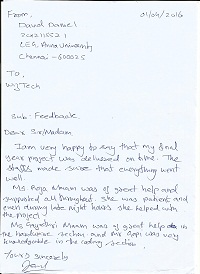 From, 01/04/2016
David Daniel
2012115621
CEG, Anna University
Chennai - 600025
To,
Wj Tech
Sub: Feedback
Dear Sir/Madam
I am very happy to say that my final
year project was delivered on time. The
staffs made sure that everything went
well.
Ms. Roja Mnam was of great help and
supported all throughout. She was patient and
even during late night hours she helped with
the project.
Ms Gayathri Mnam was of great help in
the hardware section and Mr Gopi was very
knowledgable in the coding section
Yours sincerely